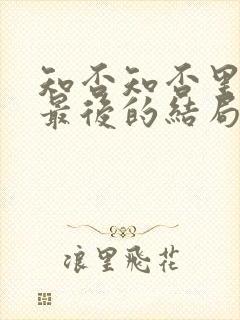 知否知否里
最後的結局
浪里飛花